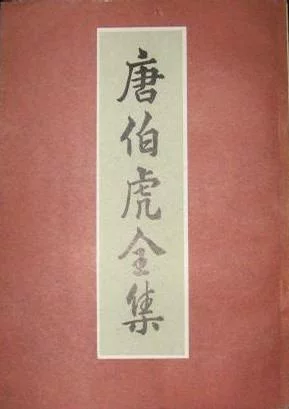 唐伯虎全集